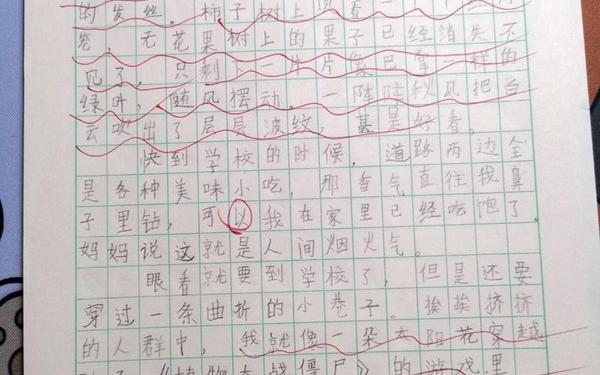 的发丝。柿子树上
笼，无花果树上的果子已经消失不
见了，只剩下一片片像巴掌一样的
绿叶，随风摆动。一阵阵秋风把白
云吹出了层层波纹，甚是好看。
快到学校的时候，道路两边全
是各种美味小吃，那香气直往我鼻
子里钻，可以我在家里已经吃饱了。
妈妈说这就是人间烟火气。
眼看就要到学校了，但是还要
穿过一条曲折的小巷子。挨挨挤挤
的人群中，我就像一朵太阳花穿越
《植物大战僵尸》的游戏里